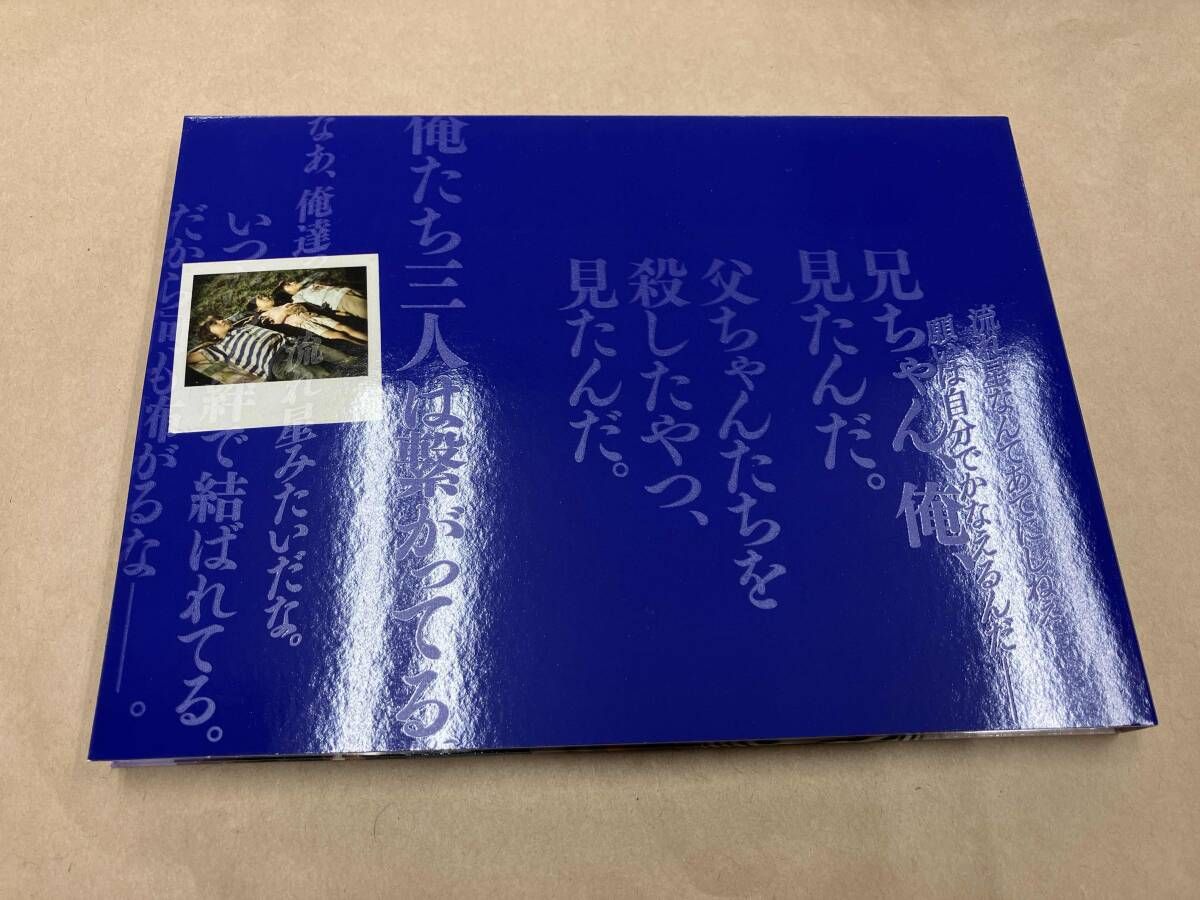 流れ星なんてあてにしねえ
願いは自分でかなえるんだ――
兄ちゃん、俺、
見たんだ。
父ちゃんたちを
殺したやつ、
見たんだ。
俺たち三人は繋がってる
なあ、俺達
流れ星みたいだな。
いつ
絆で結ばれてる。
だから
も宿がるな――。